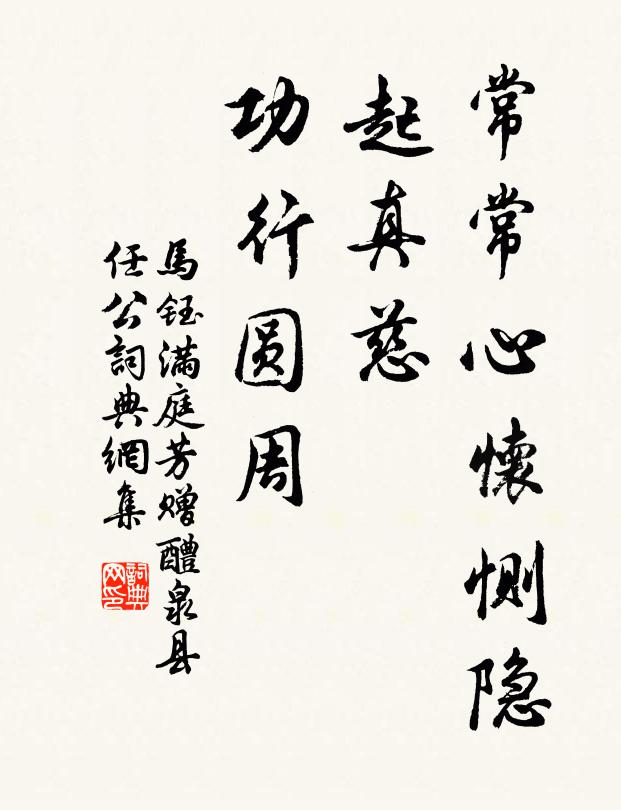 常常心懷惻隐
起真慈
功行圆周
馬鈺滿庭芳赠醴泉县
任公詞典網集
詞典网印